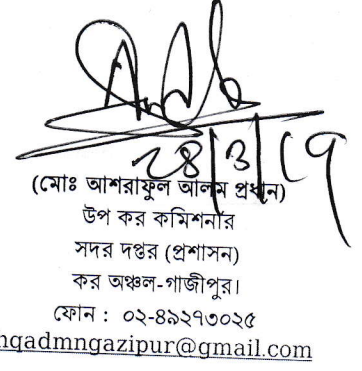 ২৪/৩/১৭
(মোঃ আশরাফুল আলম প্রধান)
উপ কর কমিশনার
সদর দপ্তর (প্রশাসন)
কর অঞ্চল-গাজীপুর।
ফোন : ০২-৪৯২৭৩০২৫
nqadmngazipur@gmail.com